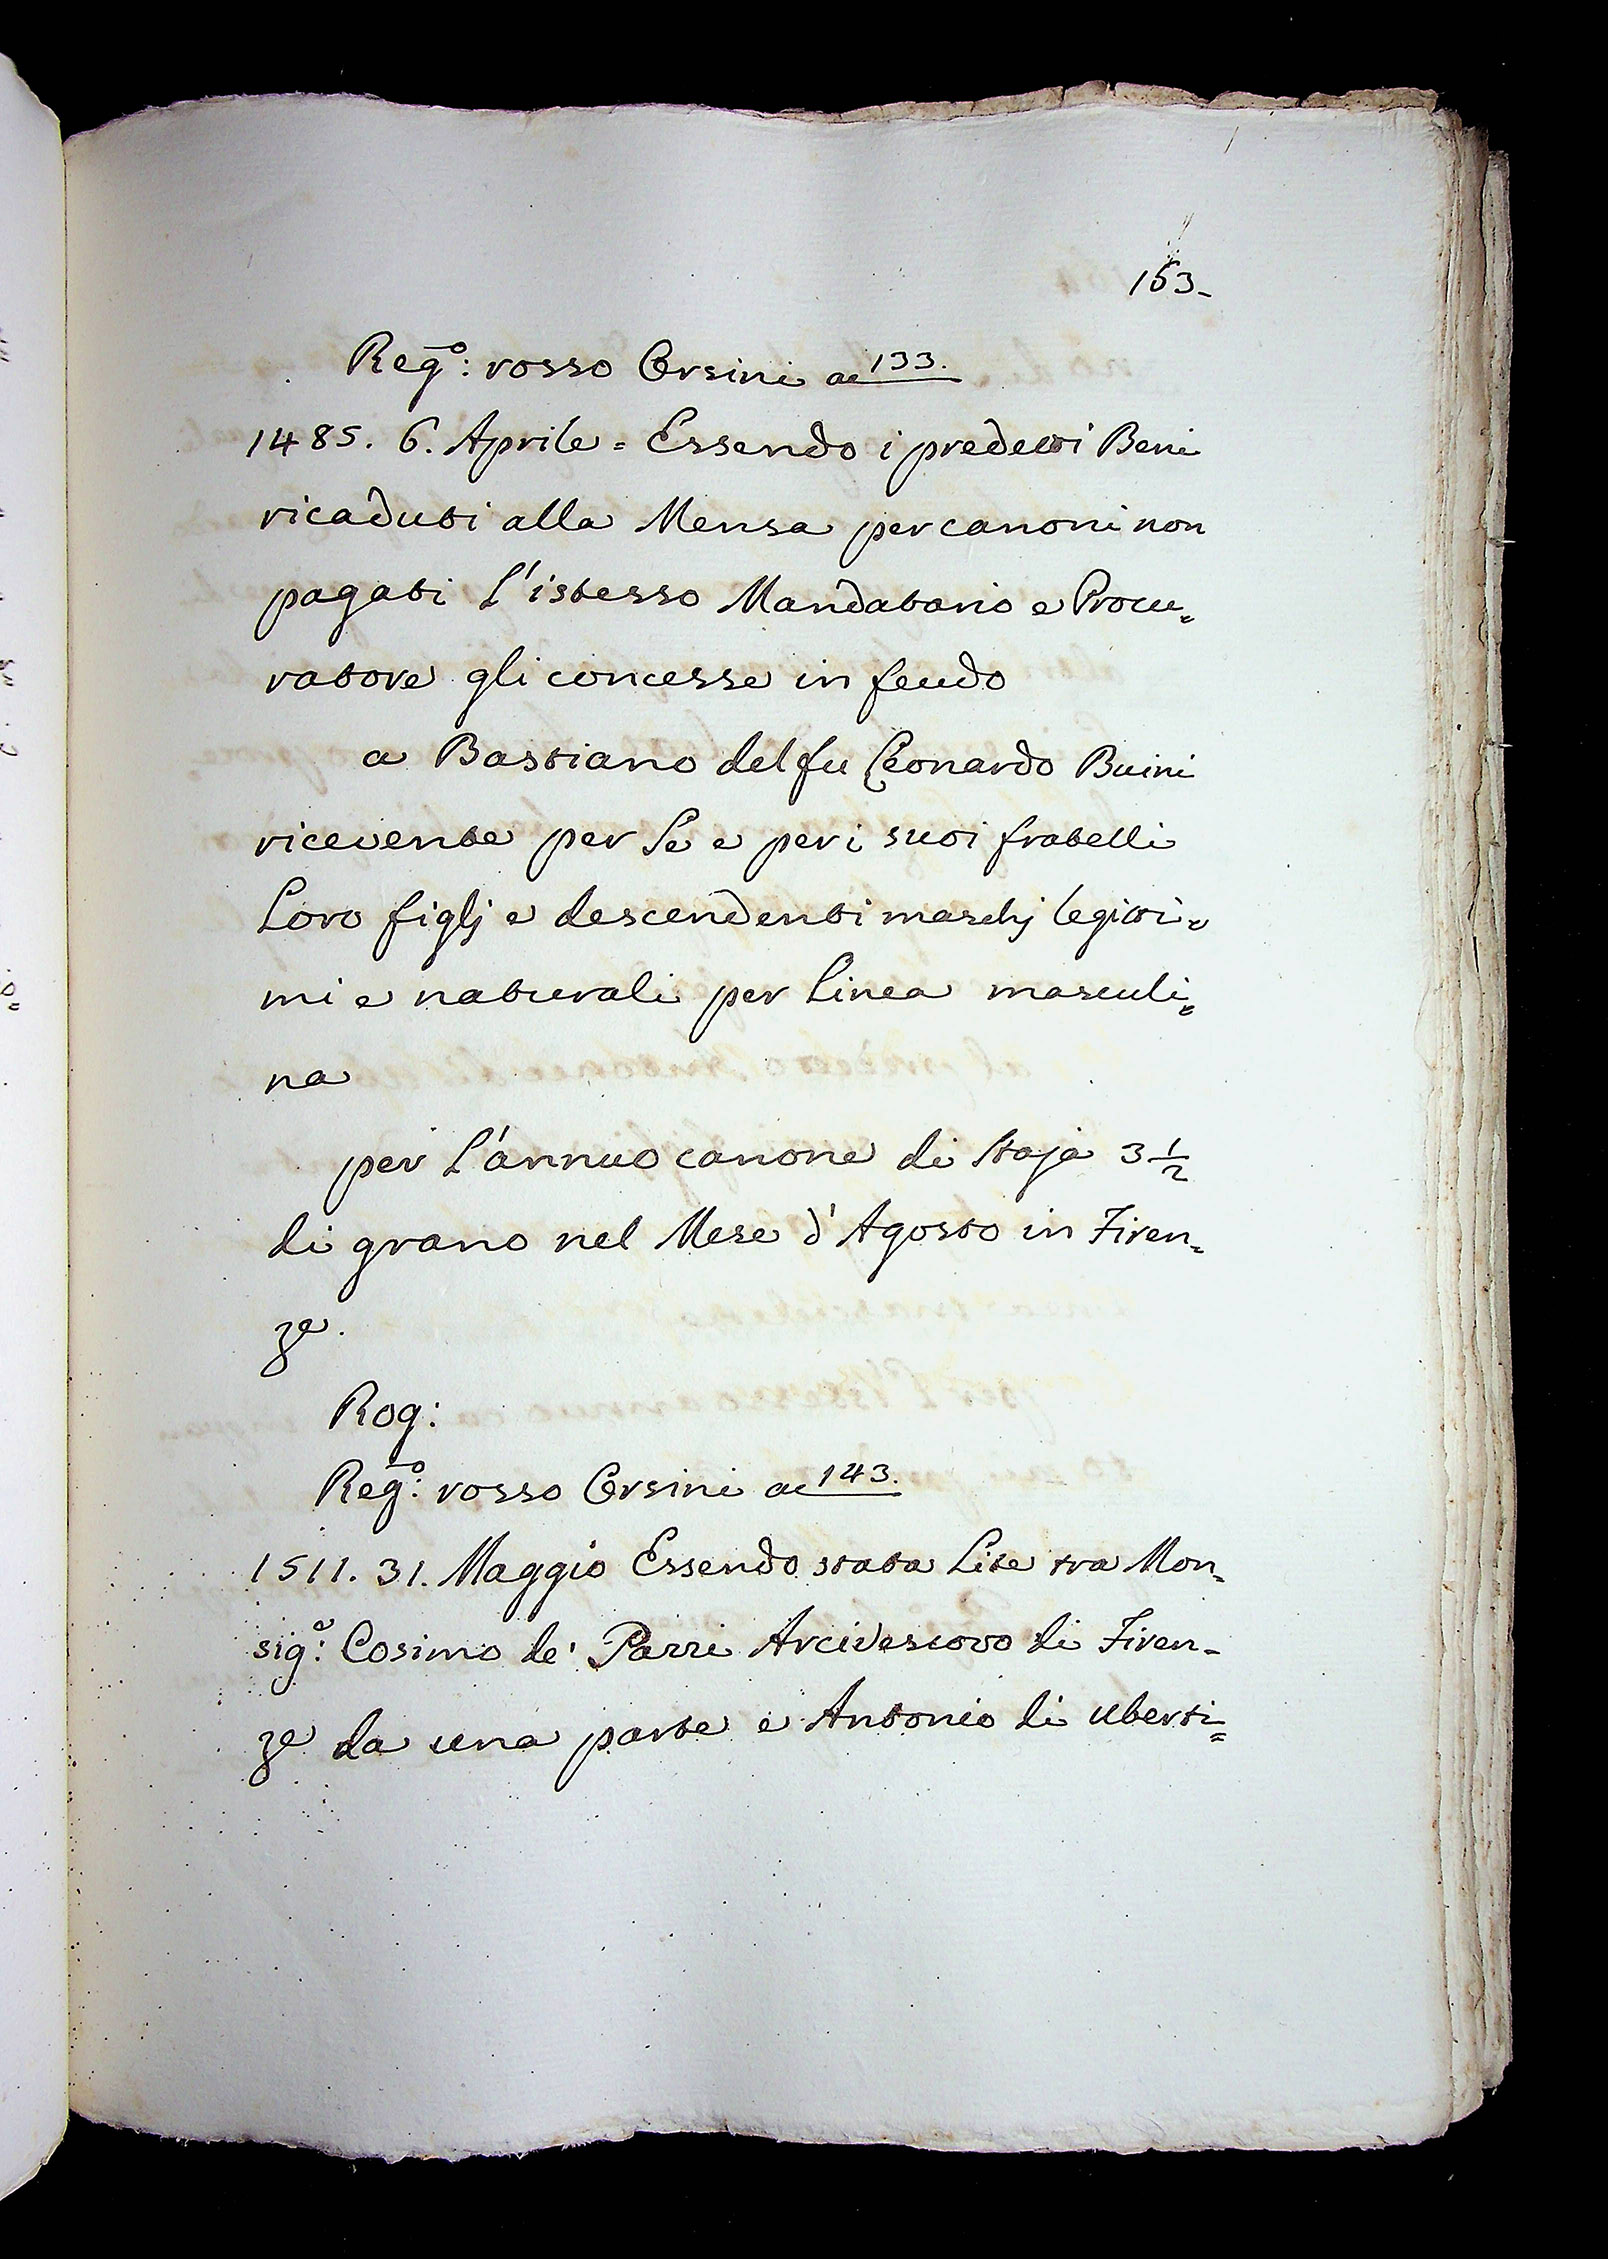 163-
Reg:º rosso Orsini a 133.
1485. 6. Aprile = Essendo i predetti Beni
ricaduti alla Mensa per canoni non
pagati l'istesso Mandatario e Procu=
ratore gli concesse in feudo
a Bastiano del fu Leonardo Buini
ricevente per se e per i suoi fratelli
loro figlj e descendenti maschj legitti=
mi e naturali per linea masculi=
na
per l'annuo canone di staja 3 1/2
di grano nel Mese d'Agosto in Firen=
ze.
Rog:
Reg:º rosso Orsini a 143.
1511. 31. Maggio Essendo stata lite tra Mon=
sig:º Cosimo de' Pazzi Arcivescovo di Firen=
ze da una parte e Antonio di Uberti=